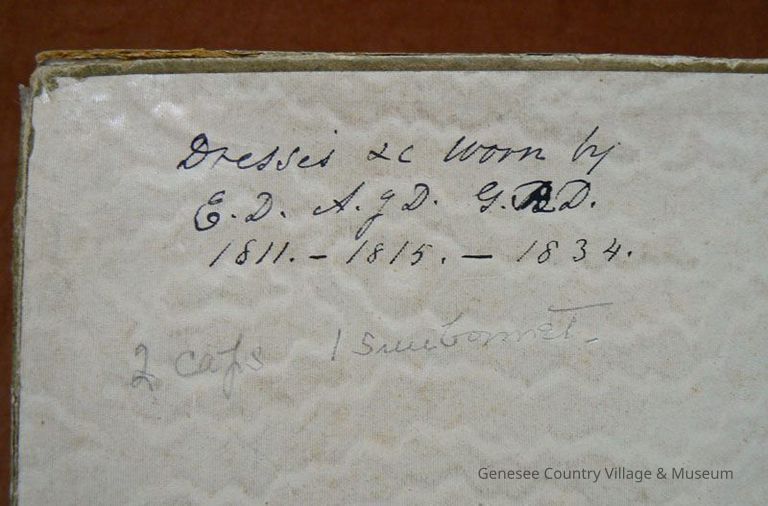 Dresses &c worn by
E. D. A. J D. G. D.
1811. – 1815. – 1834.
2 caps 1 Sunbonnet.
Genesee Country Village & Museum